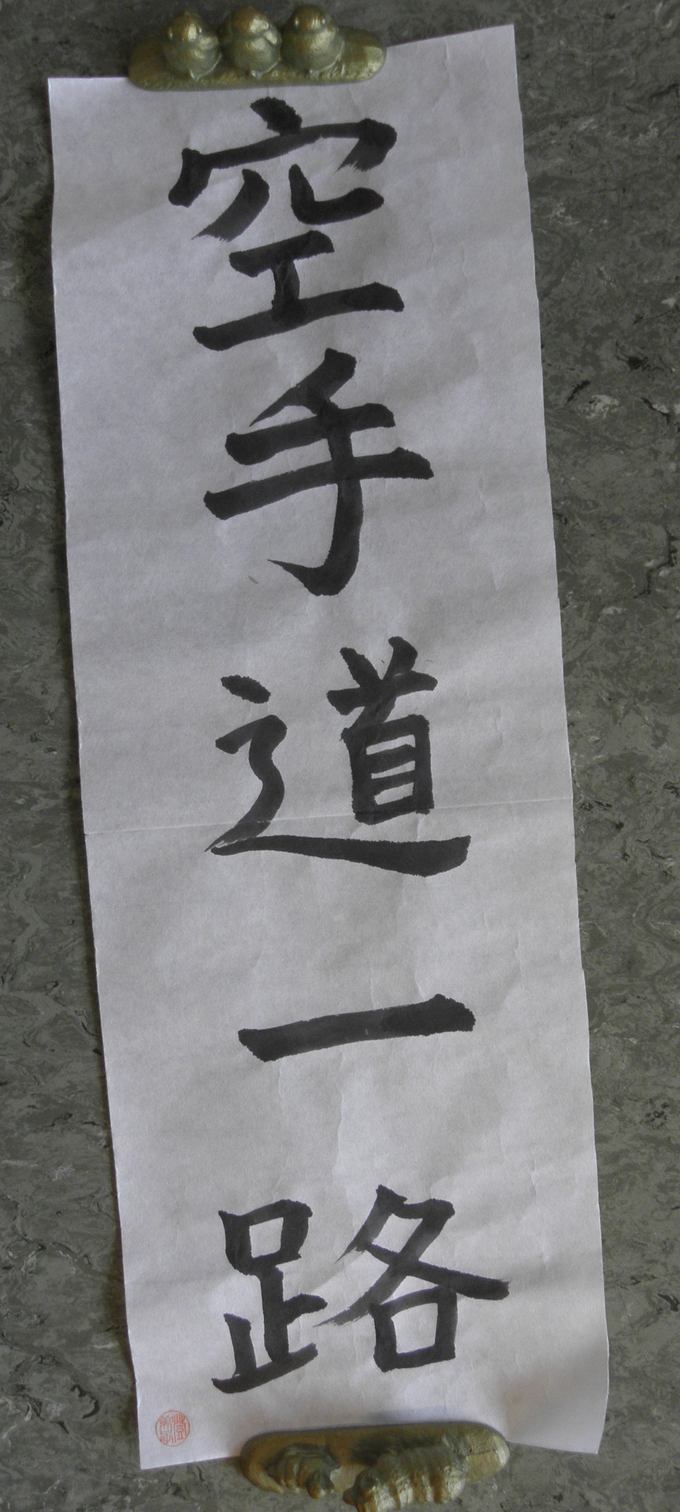 空手道一路